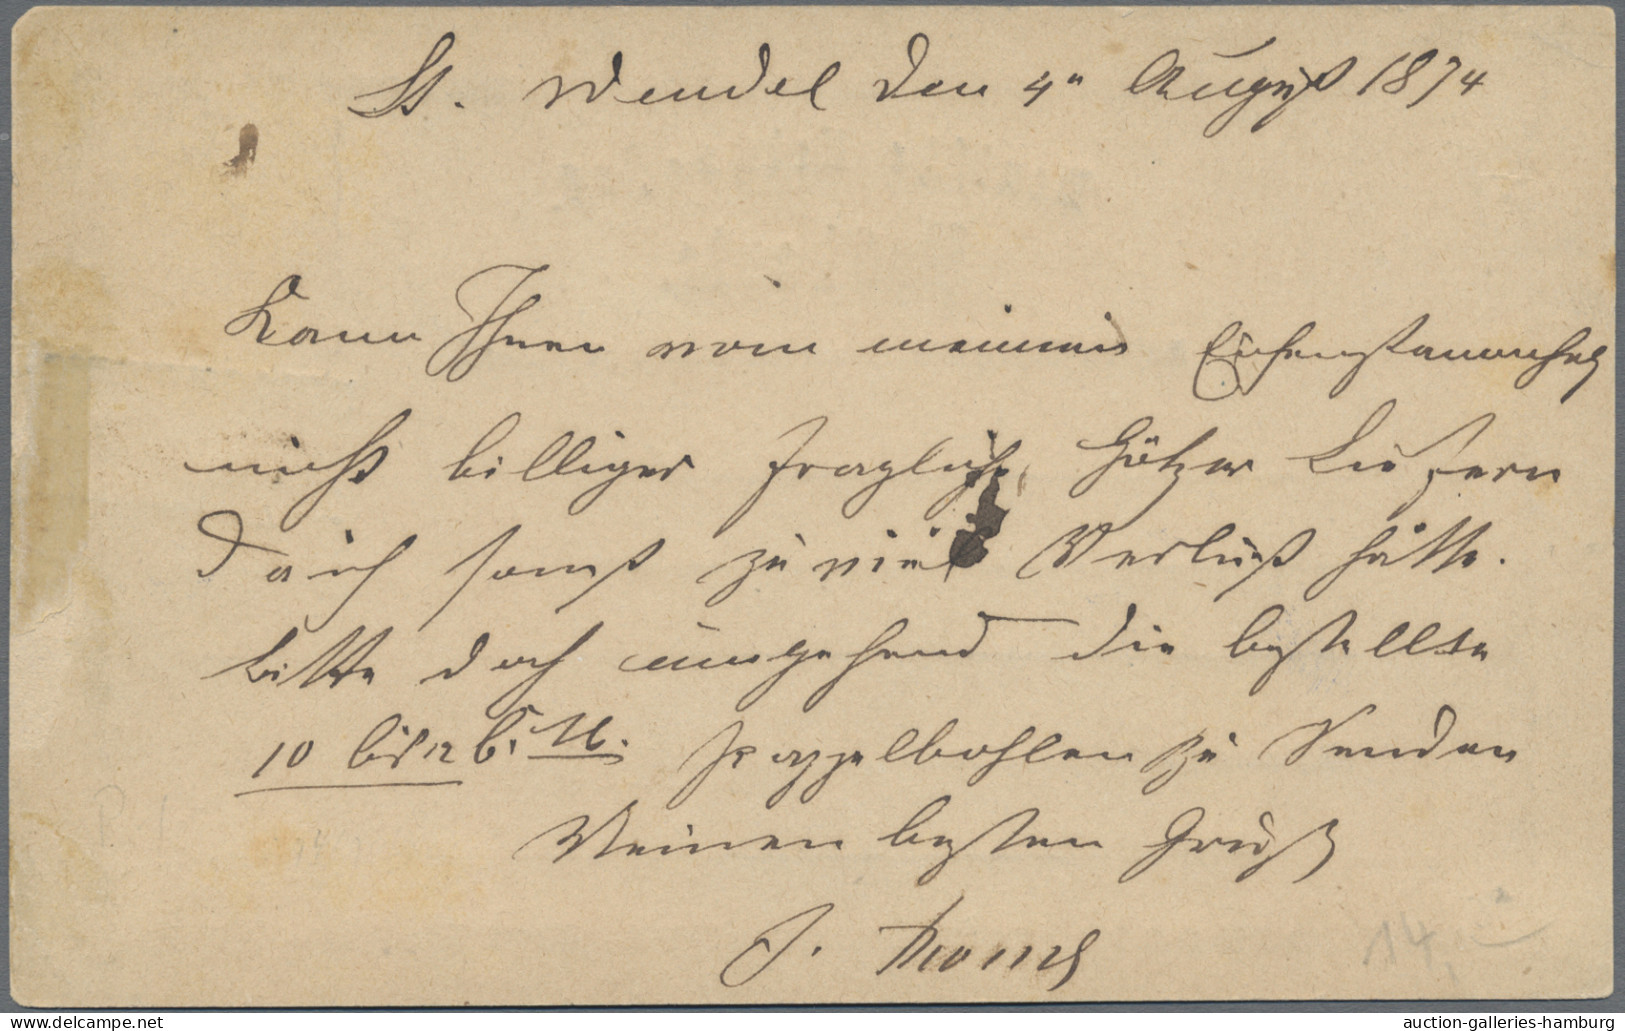 St. Wendel den 4n August 1874
Kann Ihnen von meinem Eichenstammholz
nicht billiger fragliche Hölzer Liefern
da ich sonst zu viel Verlust hätte.
bitte doch umgehend die bestellte
10 bis 12 Pappelbohlen zu Senden
Meinen besten Gruß
J.
auction-galleries-hamburg
www.delcampe.net